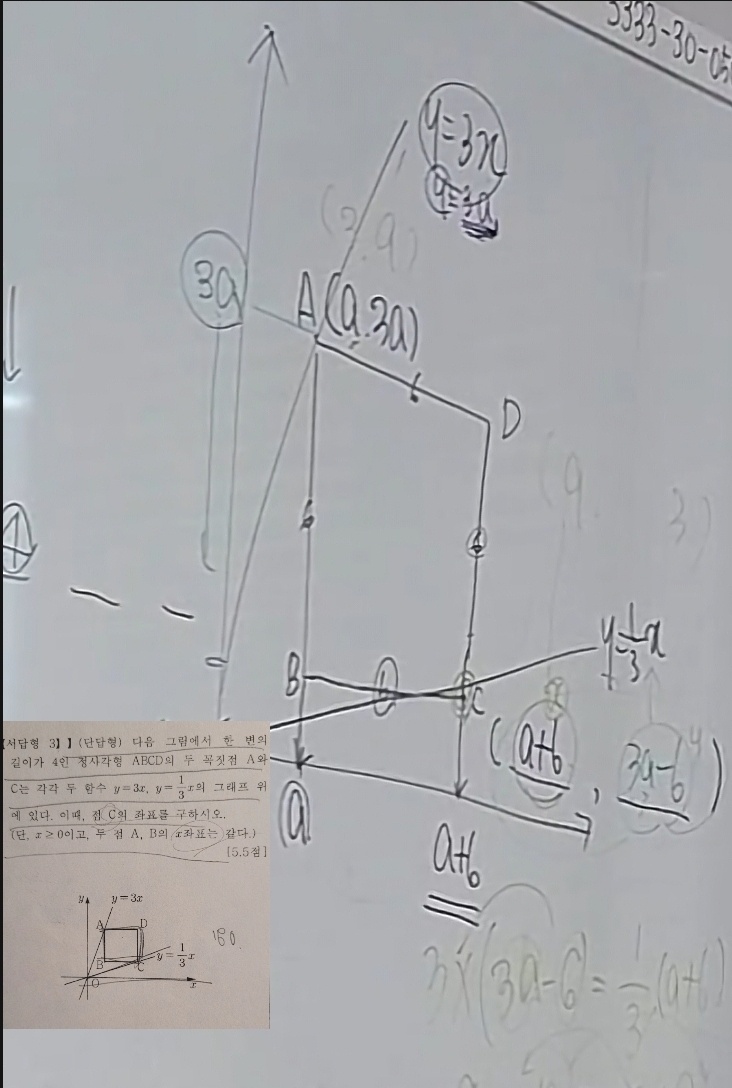 5333-30-05
y=3x
9=3a
(3, 9)
3a
A(a, 3a)
6
D
6
6
(9. 3)
B
6
C
y=1/3x
(a+6, 3a-6)
a
a+6
3×(3a-6)=1/3(a+6)
【서답형 3】] (단답형) 다음 그림에서 한 변의
길이가 4인 정사각형 ABCD의 두 꼭짓점 A와
C는 각각 두 함수 y=3x, y=1/3x의 그래프 위
에 있다. 이때, 점 C의 좌표를 구하시오.
(단, x≥0이고, 두 점 A, B의 x좌표는 같다.)
[5.5점]
y
y=3x
A
D
B
C
y=1/3x
O
x